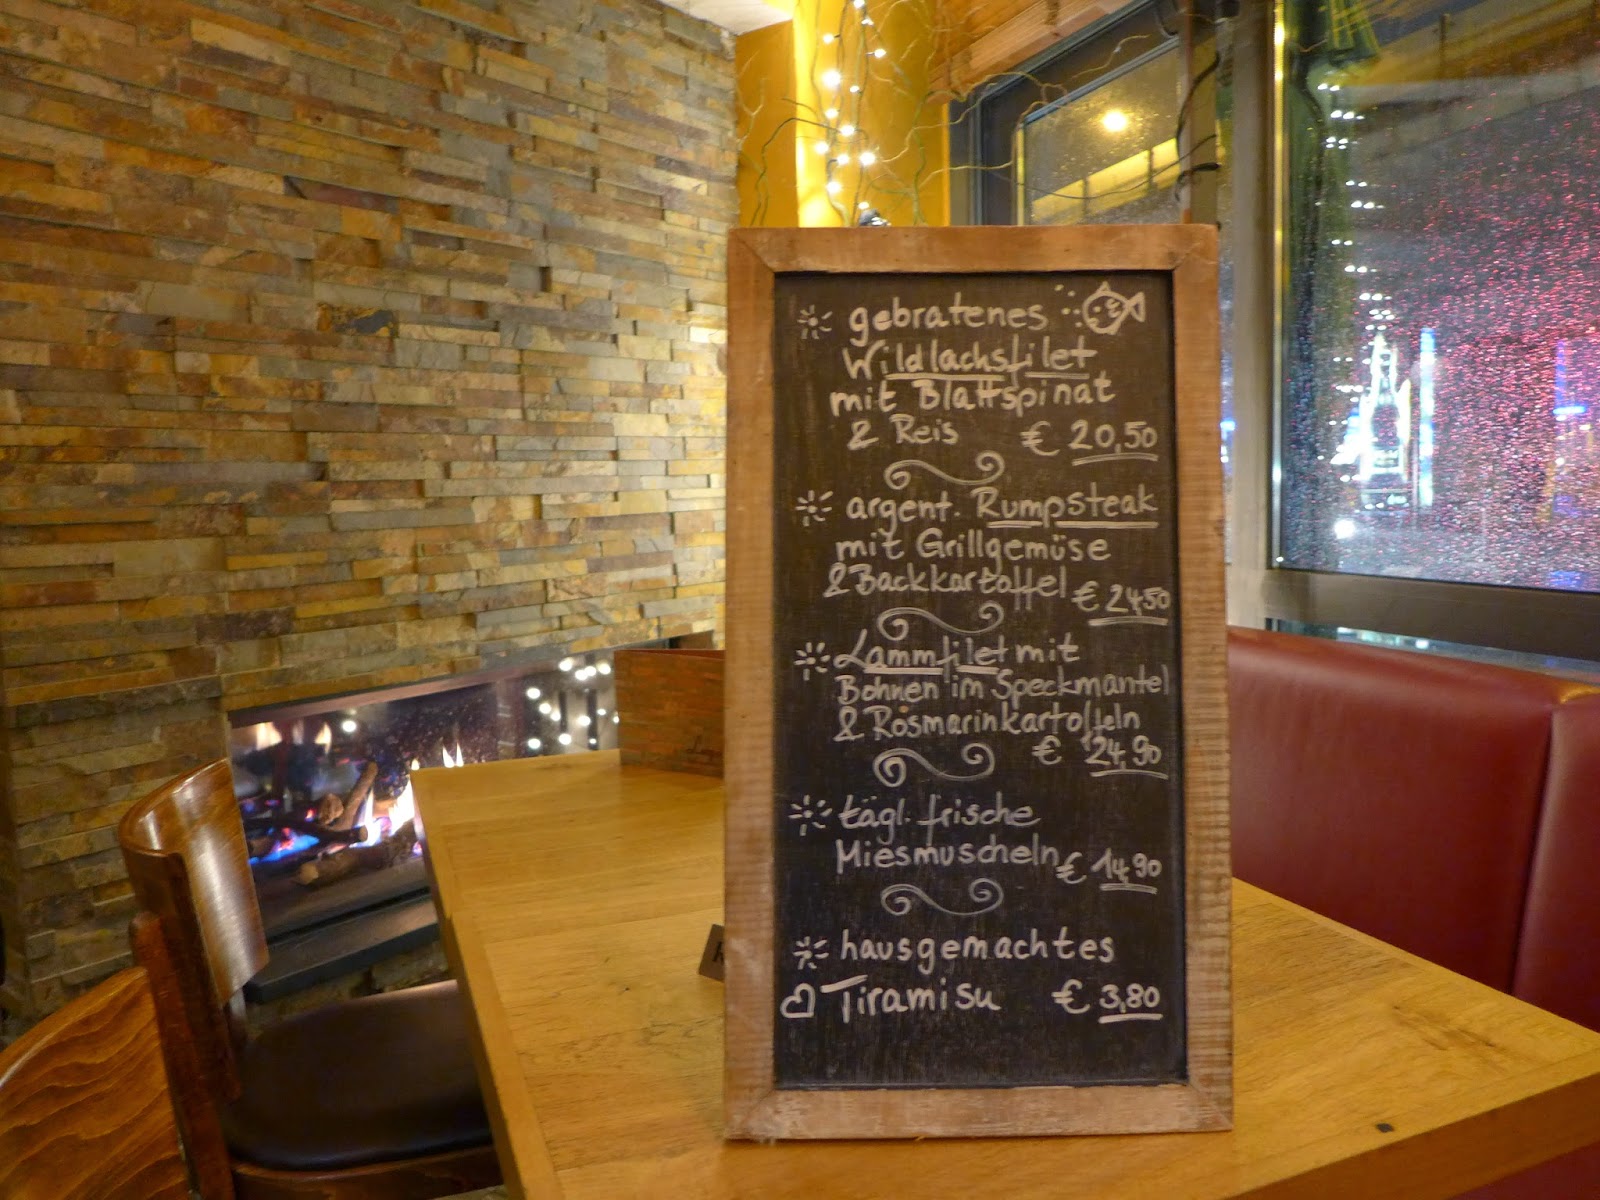 gebratenes
Wildlachsfilet
mit Blattspinat
& Reis € 20,50
argent. Rumpsteak
mit Grillgemüse
& Backkartoffel € 24,50
Lammfilet mit
Bohnen im Speckmantel
& Rosmarinkartoffeln
€ 24,90
tägl. frische
Miesmuscheln € 14,90
hausgemachtes
Tiramisu € 3,80